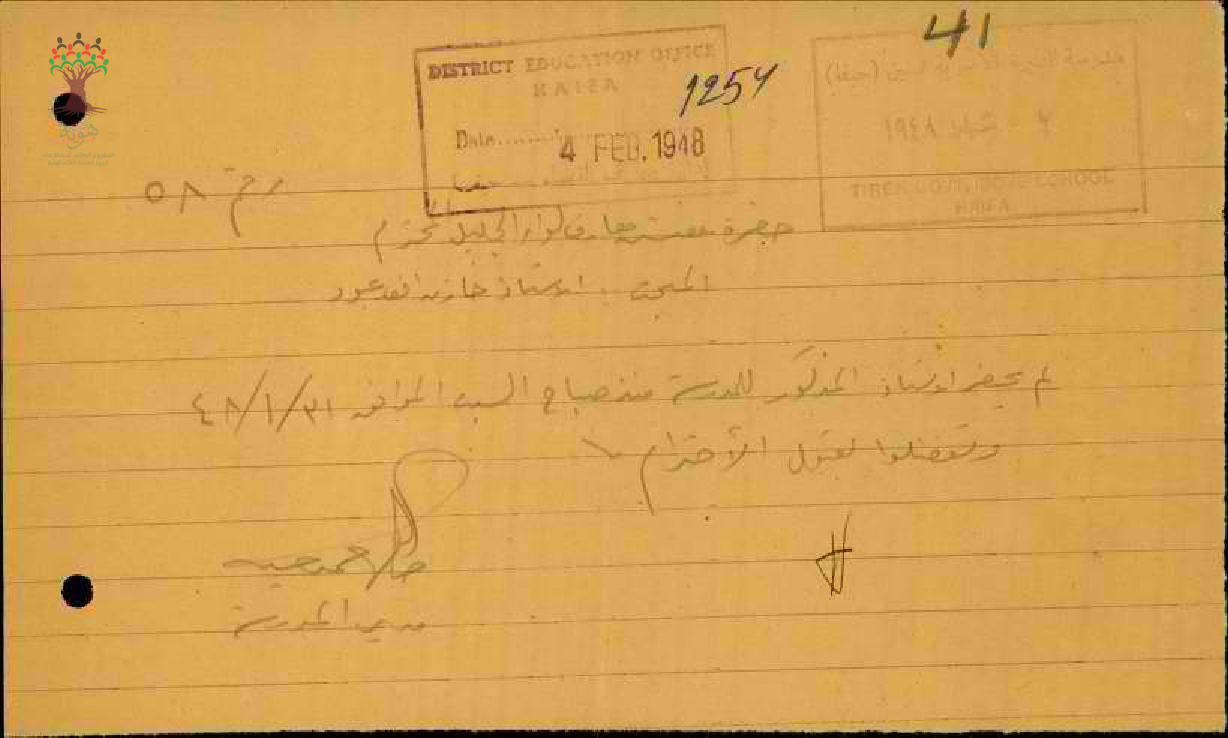 41
DISTRICT EDUCATION OFFICE
HAIFA
1254
Date
4 FEB. 1948
حيفا
مدرسة الطيرة الأميرية للبنين (حيفا)
٢ - شباط ١٩٤٨
TIREH GOVT. BOYS SCHOOL
HAIFA
هوية
رقم ٥٨
حضرة مفتش معارف لواء الجليل المحترم
المبحث : الاستاذ
لم يحضر الاستاذ المذكور للمدرسة منذ صباح السبت الموافق ٤٨/١/٣١
وتفضلوا بقبول الأحترام
مدير المدرسة